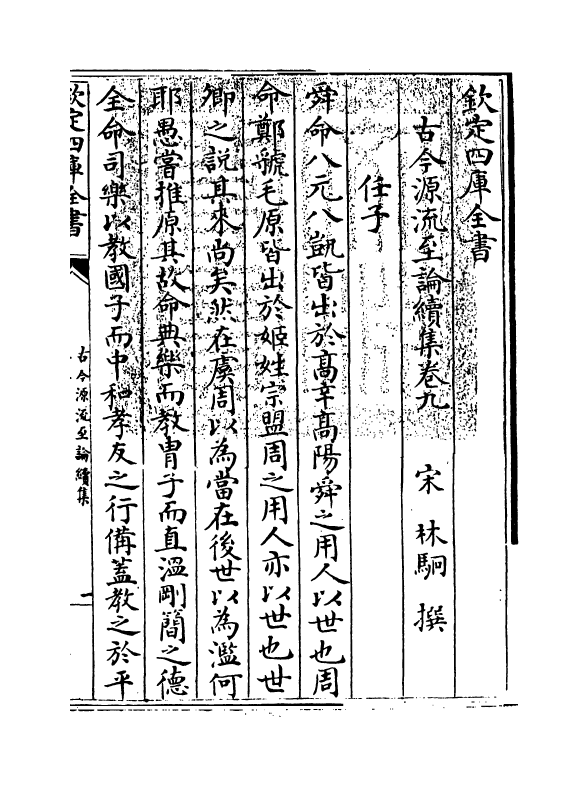 欽定四庫全書
古今源流至論續集卷九
宋 林駉 撰
任子
舜命八元八凱皆出於髙辛髙陽舜之用人以世也周
命鄭虢毛原皆出於姬姓宗盟周之用人亦以世也世
卿之說其來尚矣然在虞周以為當在後世以為濫何
耶愚嘗推原其故命典樂而教胄子而直溫剛簡之德
全命司樂以教國子而中和孝友之行備蓋教之於平
欽定四庫全書
古今源流至論續集
一